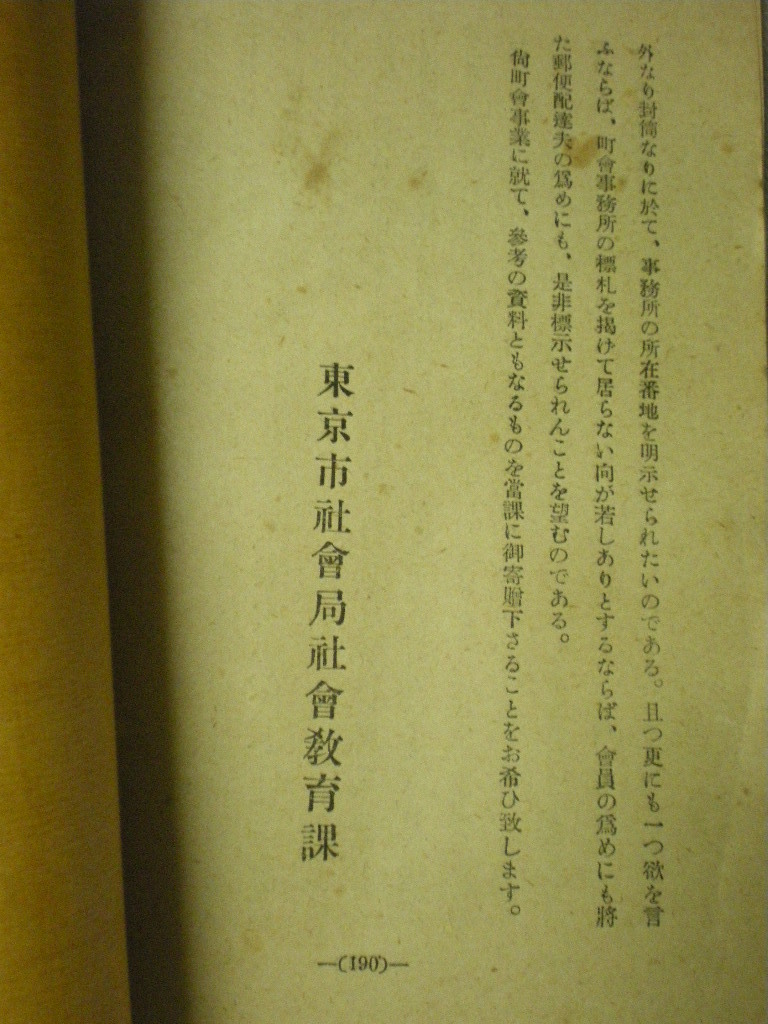 外なり封筒なりに於て、事務所の所在番地を明示せられたいのである。且つ更にも一つ欲を言
ふならば、町會事務所の標札を揭げて居らない向が若しありとするならば、會員の爲めにも將
た郵便配達夫の爲めにも、是非標示せられんことを望むのである。
尙町會事業に就て、參考の資料ともなるものを當課に御寄贈下さることをお希ひ致します。
東京市社會局社會敎育課
—(190)—